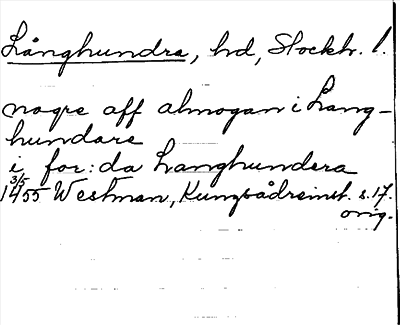 Långhundra, hd, Stockh. l.
nagre aff almogan i Lang-
hundare
i for:da Langhundera
3/5
1455 Westman, Kungsådreinst. s. 17.
orig.